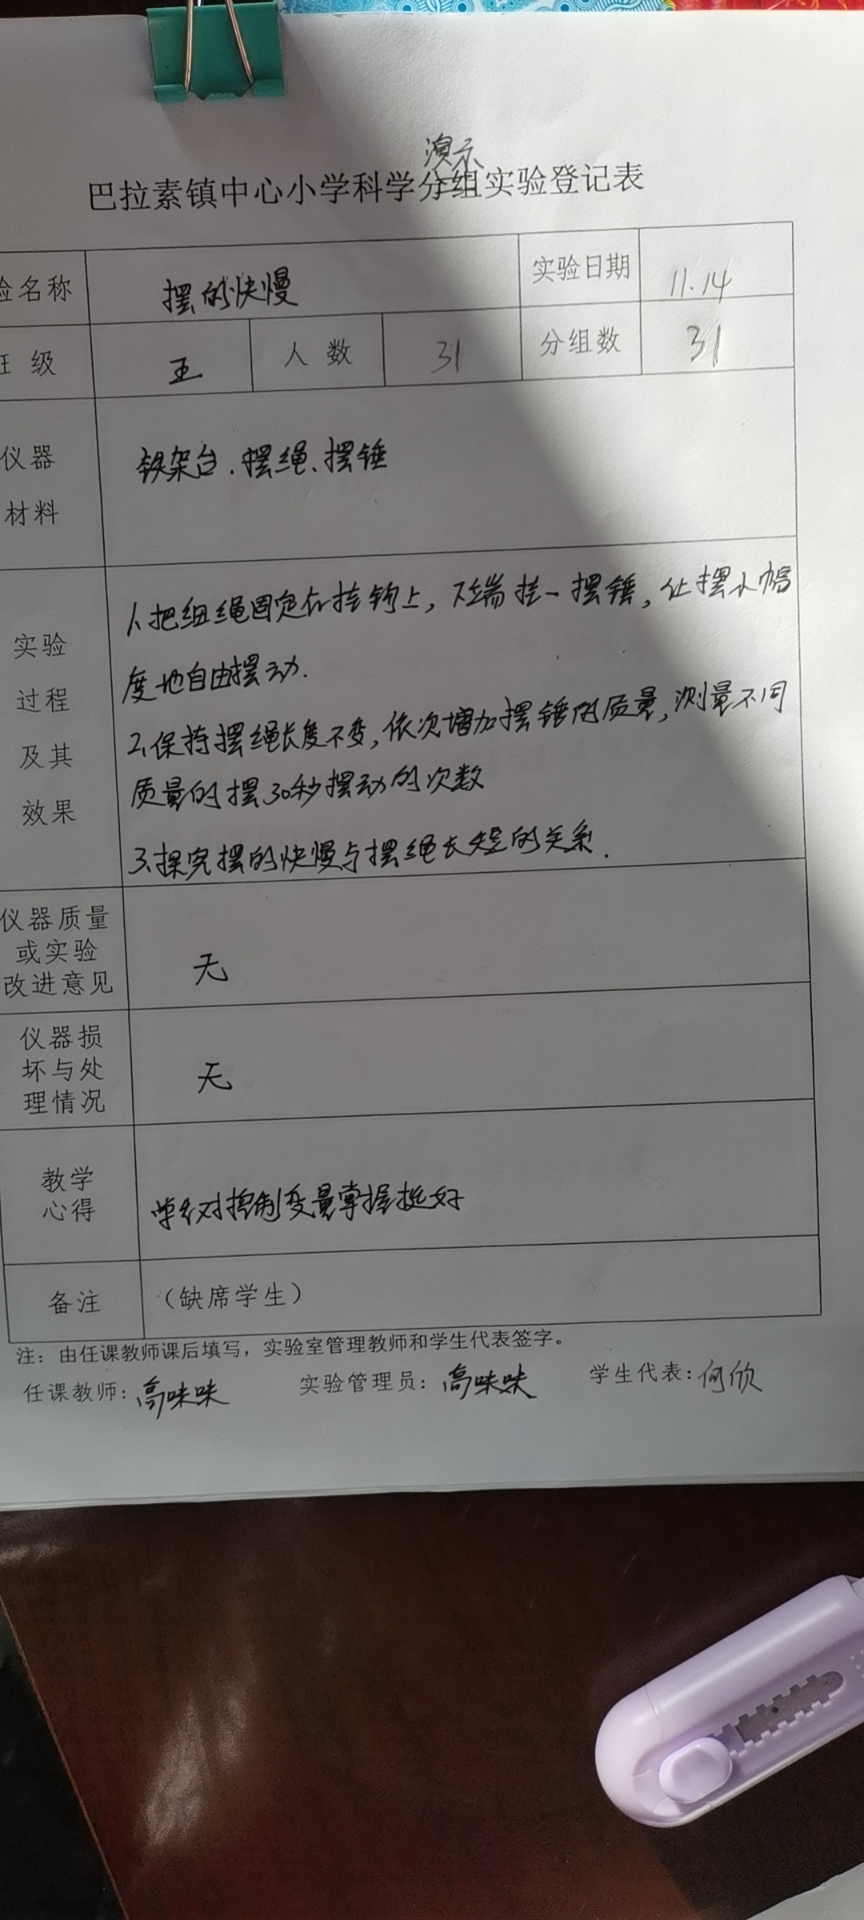 演示
巴拉素镇中心小学科学分组实验登记表
验名称 摆的快慢 实验日期 11.14
班级 五 人数 31 分组数 31
仪器
材料
铁架台、摆绳、摆锤
实验
过程
及其
效果
1、把细绳固定在挂钩上，下端挂一摆锤，让摆小幅
度地自由摆动.
2、保持摆绳长度不变，依次增加摆锤的质量，测量不同
质量的摆30秒摆动的次数
3、探究摆的快慢与摆绳长短的关系.
仪器质量
或实验
改进意见
无
仪器损
坏与处
理情况
无
教学
心得
学生对控制变量掌握挺好
备注 （缺席学生）
注：由任课教师课后填写，实验室管理教师和学生代表签字。
任课教师：高味味 实验管理员：高味味 学生代表：何欣